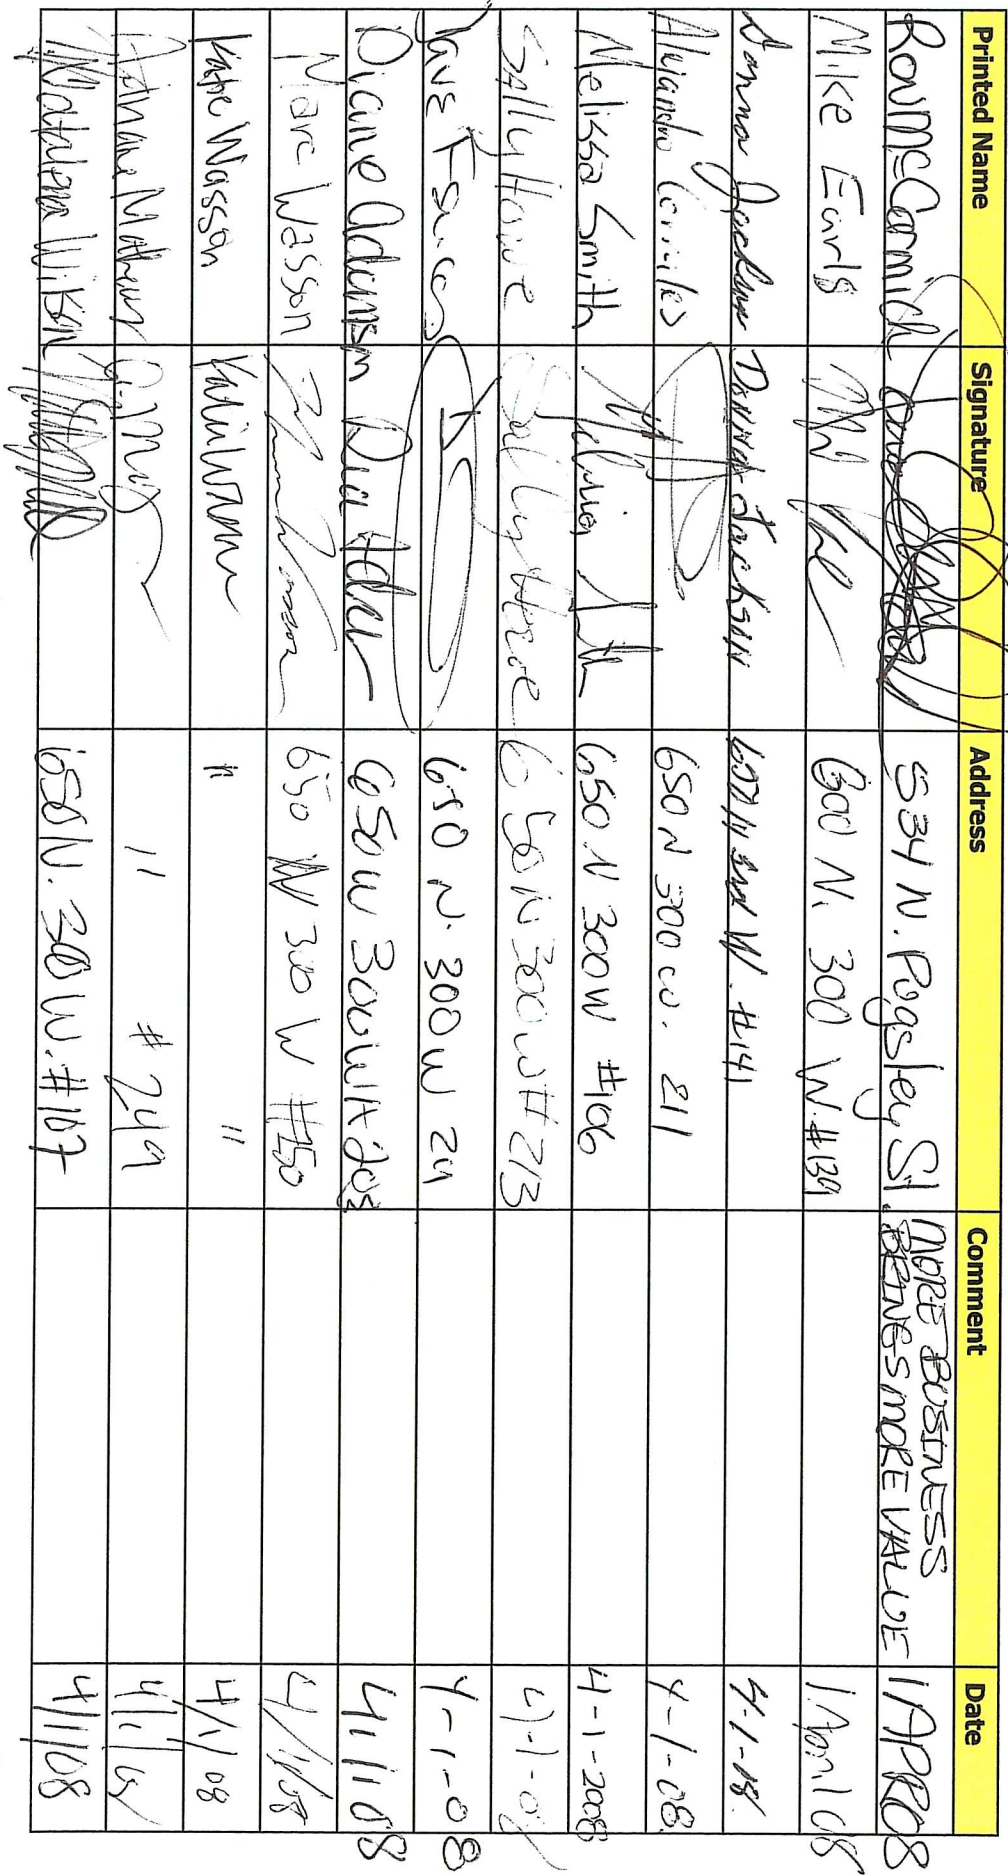 Printed Name Signature Address Comment Date
Ron McCormick 534 N. Pogsley St. MORE BUSINESS
BRINGS MORE VALUE 1APR08
Mike Earls 600 N. 300 W. #139 1 April 08
Donna Jackson Donna Jackson W. #141 4-1-08.
Alejandro 650 N 300 W. 211 4-1-08.
Melissa Smith 650 N 300W #106 4-1-2008
Sally Howe Sally Howe 650 N 300 W # 213 4-1-08
Dave 650 N. 300 W 4-1-08
Diane Adamson 650 W 300W # 4/1/08
Marc Wasson Marc Wasson 650 N 300 W #150 4/1/08
Katie Wasson " " 4/1/08
Mathur " # 249 4/1/08
Natalana Wilson 650 N. 300 W. #107 4/1/08